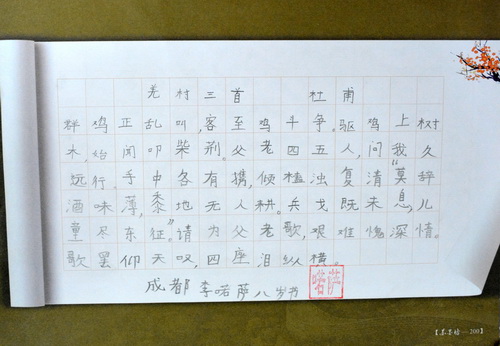 羌村三首 杜甫
群鸡正乱叫，客至鸡斗争。驱鸡上树
木，始闻叩柴荆。父老四五人，问我久
远行。手中各有携，倾榼浊复清“莫辞
酒味薄，黍地无人耕。兵戈既未息，儿
童尽东征。”请为父老歌，艰难愧深情。
歌罢仰天叹，四座泪纵横。
成都 李喏萨 八岁书
喏萨